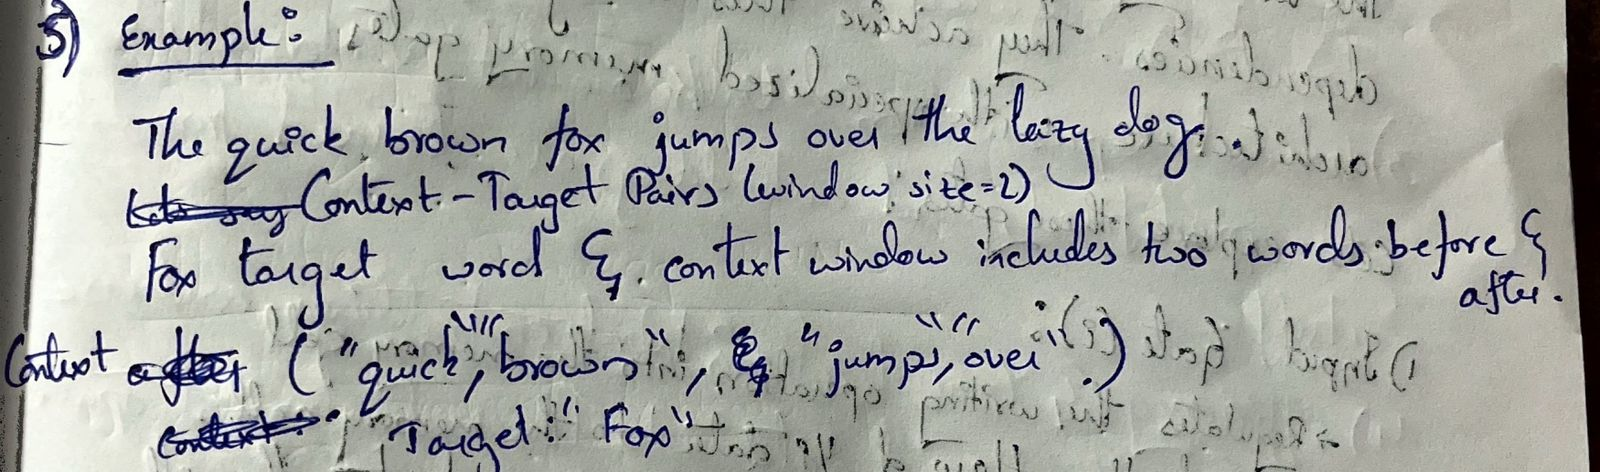 5) Example:
The quick brown fox jumps over the lazy dog.
Context-Target Pairs (window size=2)
Fox target word & context window includes two words before &
after.
Context ("quick", "brown", & "jumps", "over".)
Target: "Fox"